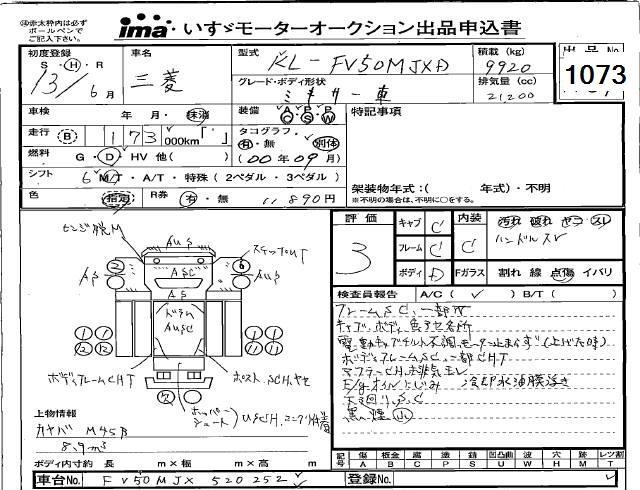 ㊟赤太枠内は必ず
ボールペンで
ご記入下さい。
ima いすゞモーターオークション出品申込書
初度登録
S・H・R
13年6月
車名
三菱
型式
KL-FV50MJXD
積載 (kg)
9920
出品No
1073
グレード・ボディ形状
ミキサー車
排気量 (cc)
21200
車検
年 月・抹消
装備 A P P
C S W
特記事項
走行 B 173 000km
タコグラフ
有・無 別体
燃料 G・D・HV 他( )
(00年09月)
シフト 6 M/T・A/T・特殊(2ペダル・3ペダル)
色 指定 R券 有・無 11,890円
架装物年式:( 年式)・不明
※不明の場合は、不明に○をする。
評価
3
キャブ C
フレーム C
ボディ D
内装
C
Fガラス
汚れ 破れ ヤコ スレ
ハンドルスレ
割れ 線 点傷 イバリ
検査員報告 A/C( ✓ ) B/T( )
フレームSC、一部サ
キャブ、ボディ色アセ各所
電動キャブチルト不調、モーター止まらず(上げた時)
ボディフレームSC、一部CHT
マフラーCH、排気モレ
E/gオイルにじみ 冷却水油膜浮き
下廻りS、C
黒煙 小
ヒンジ脱M
AUS
ステップUT
AS
ASC
AUS
AS
ドラム
AUSC
ボディフレームCHT
ホッパー
シュート
上物情報
カヤバ MR45B
8.9m³
ボディ内寸約 長 m×幅 m×高 m
記号 傷A 板金B 腐C 塗P 錆S 凹凸曲U 波W 穴H 跡M レツ割T
車台No. FV50MJX 520252
登録No.